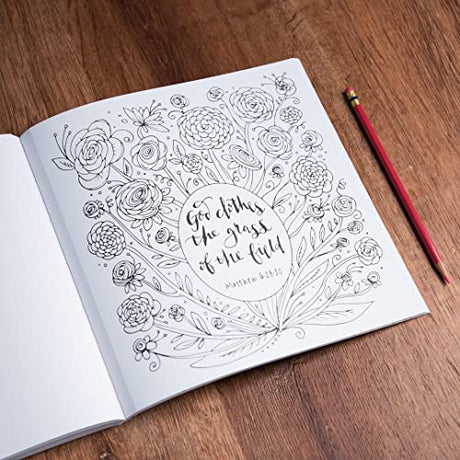 God clothes
the grass
of the field
Matthew 6:28-30